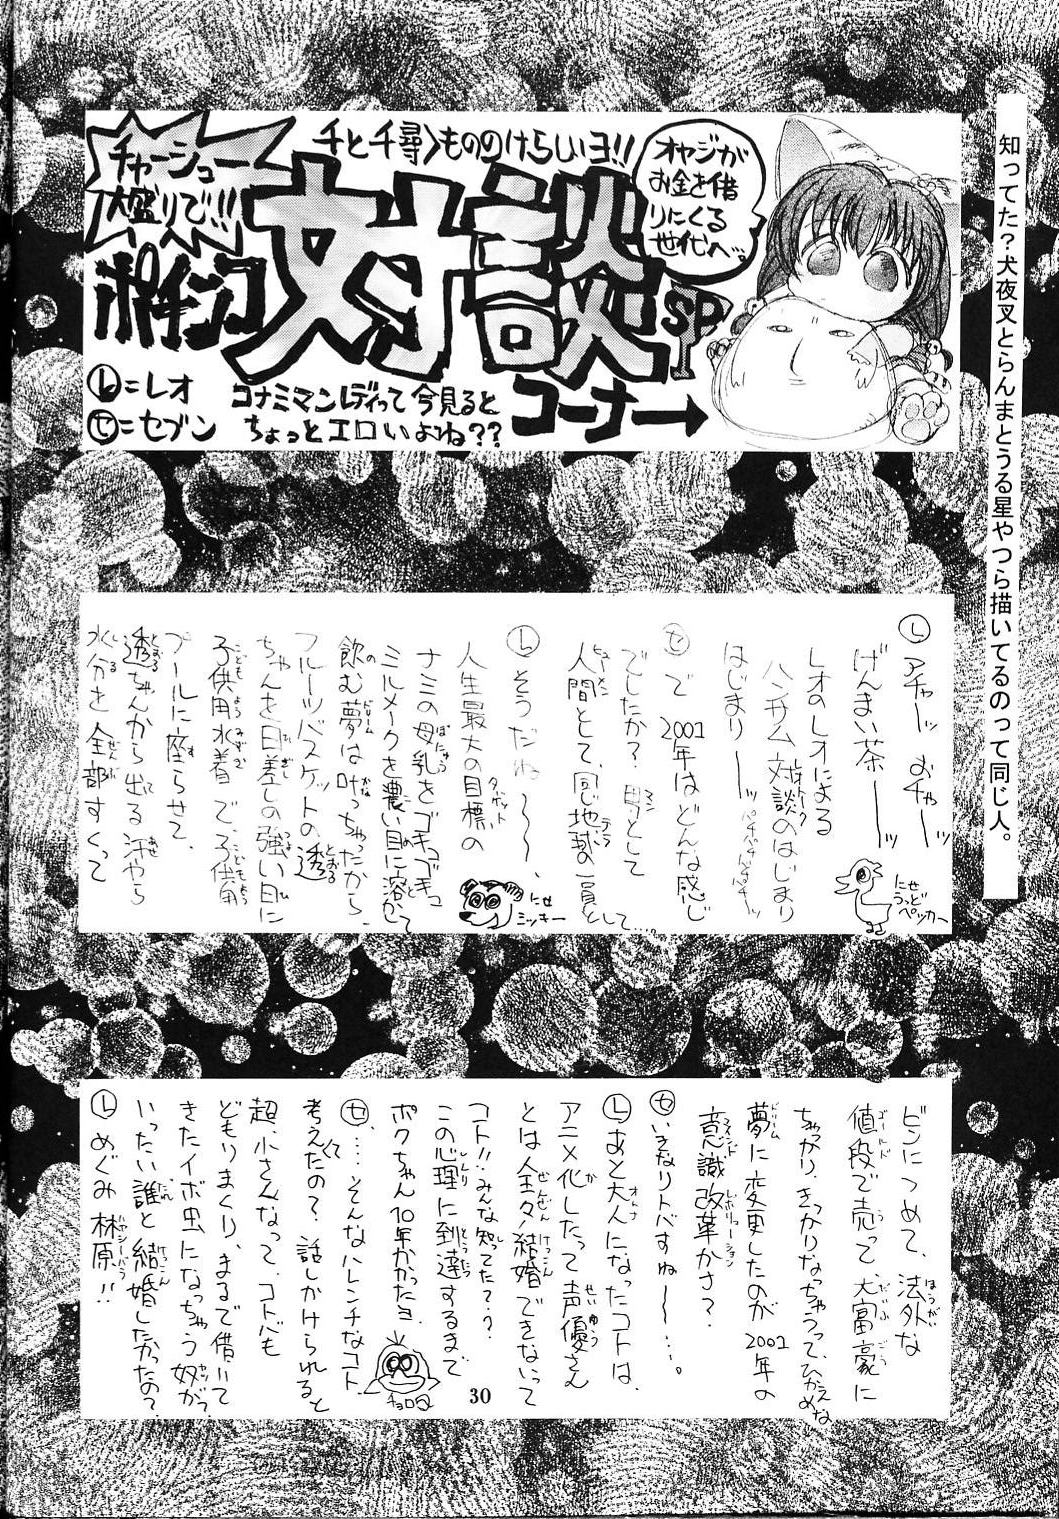 知ってた?犬夜叉とらんまとうる星やつら描いてるのって同じ人。
チャーシュー
大盛りで!!
千と千尋〉もののけらしいヨ!!
オヤジが
お金を借
りにくる
世代へ。
ポチンコ
対談
SP
コーナー→
Ⓛ=レオ
㋝=セブン
コナミマンレディって今見ると
ちょっとエロいよね??
Ⓛアチャーッ おチャーッ
げんまい茶ーーッ
レオのレオによる
ハンサム対談のはじまり
はじまりーーッパチパチパチパチッ
にせ
うっど
ペッカー
㋝で 2001年はどんな感じ
でしたか? 男として
人間として、同じ地球の一員として…。
Ⓛそうだね〜〜、
人生最大の目標の
ナミの母乳をゴキュゴキュ
ミルメークを濃い目に溶かして
飲む夢は叶っちゃったから、
フルーツバスケットの透
ちゃんを日差しの強い日に
子供用水着で、子供用
プールに座らせて、
透ちゃんから出る汗やら
水分を全部すくって
にせ
ミッキー
ビンにつめて、法外な
値段で売って大富豪に
ちゃっかり、きっかりなっちゃうってひかえめな
夢に変更したのが 2001年の
意識改革かさ?
㋝いきなりトバすね〜〜…。
Ⓛあと大人になったコトは、
アニメ化したって声優さん
とは全々結婚できないって
コト!!みんな知ってた??
この心理に到達するまで
ボクちゃん10年かかったヨ、
チョロQ
㋝…そんなハレンチなコト
考えてたの? 話しかけられると
超、小さくなって、コトバも
どもりまくり、まるで借りて
きたイボ虫になっちゃう奴が?
いったい誰と結婚したかったの?
Ⓛめぐみ林原!!
30